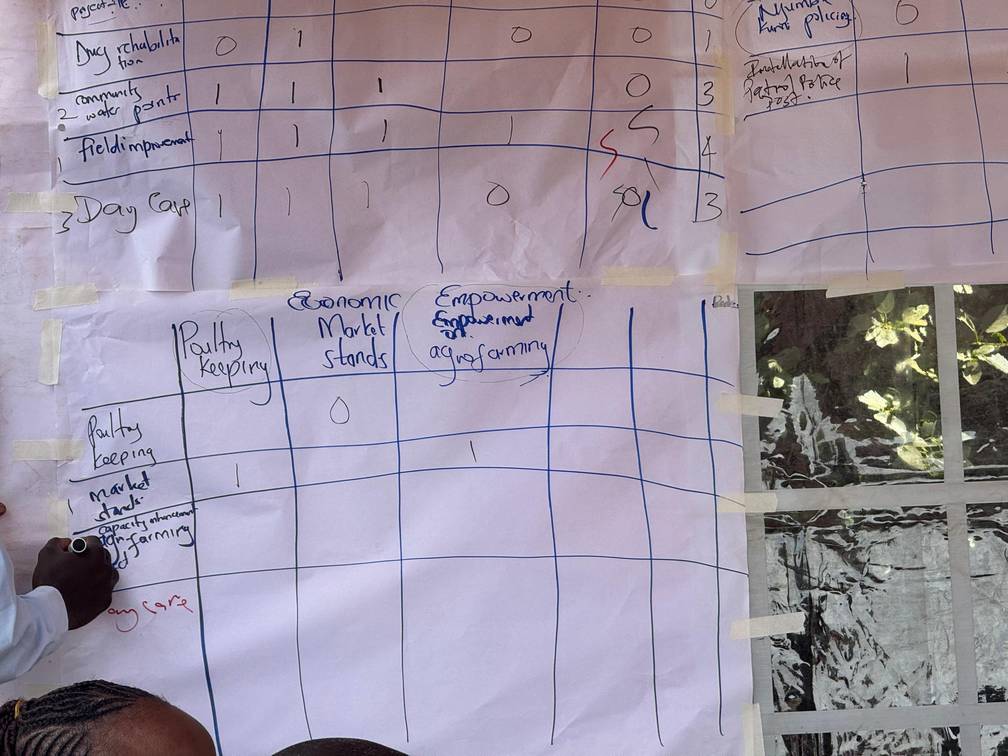 Drug rehabilita
tion
0 1 0 0 1
2 community
water points
1 1 1 0 3
1 field improvement
1 1 1 1 4
3 Day Care
1 1 1 0 3
policies
0
Installation of
Patrol Police
post.
1
Economic Empowerment
Poultry
keeping
Market
stands
Empowerment
on
agrofarming
Poultry
keeping
0
1 market
stands
1 1
capacity enhancement
farming
care